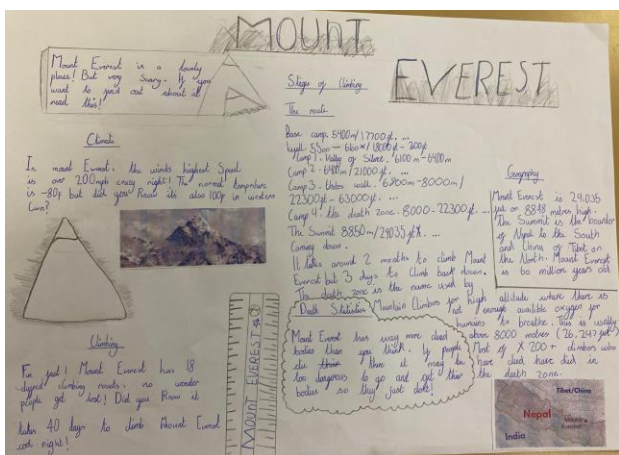 MOUNT
EVEREST
Mount Everest is a lovely
place! But very scary. If you
want to find out about it
read this!
Climate
In mount Everest. the winds highest Speed
is over 200mph crazy right! The normal
is -80f but did you Know its also 100f in western
Cwm?
Climbing
Fun fact! Mount Everest has 18
climbing routes! no wonder
people get lost! Did you Know it
takes 40 days to climb Mount Everest
cool right!
MOUNT EVEREST
Stages of Climbing
The route
Base camp. 5400m/17700ft. ...
5500 - 6000m/18000ft -
Camp 1. Valley of Silence. 6100m - 6400m
Camp 2. 6400m/21000ft. ...
Camp 3. wall. - 8000m/
22300ft - 63000ft. ...
Camp 4. the death zone. 8000 - 22300ft. ...
The Summit 8850m/29035ft. ...
Coming down.
It takes around 2 months to climb Mount
Everest but 3 days to climb back down.
The death zone is the name used by
Mountain Climbers for high altitude where there is
not enough available oxygen for
humans to breathe. This is usally
above 8000 metres (26,247
Most of 200+ climbers who
have died have died in
the death zone.
Death Statistics
Mount Everest has way more dead
bodies than you think. If people
die there it may be
too dangerous to go and get their
bodies so they just dont!
Geography
Mount Everest is 29,035
feet or 8848 metres high.
The Summit is the boarder
of Nepal to the South
and China or Tibet on
the North. Mount Everest
is 60 million years old
Tibet/China
Nepal
Mount
Everest
India